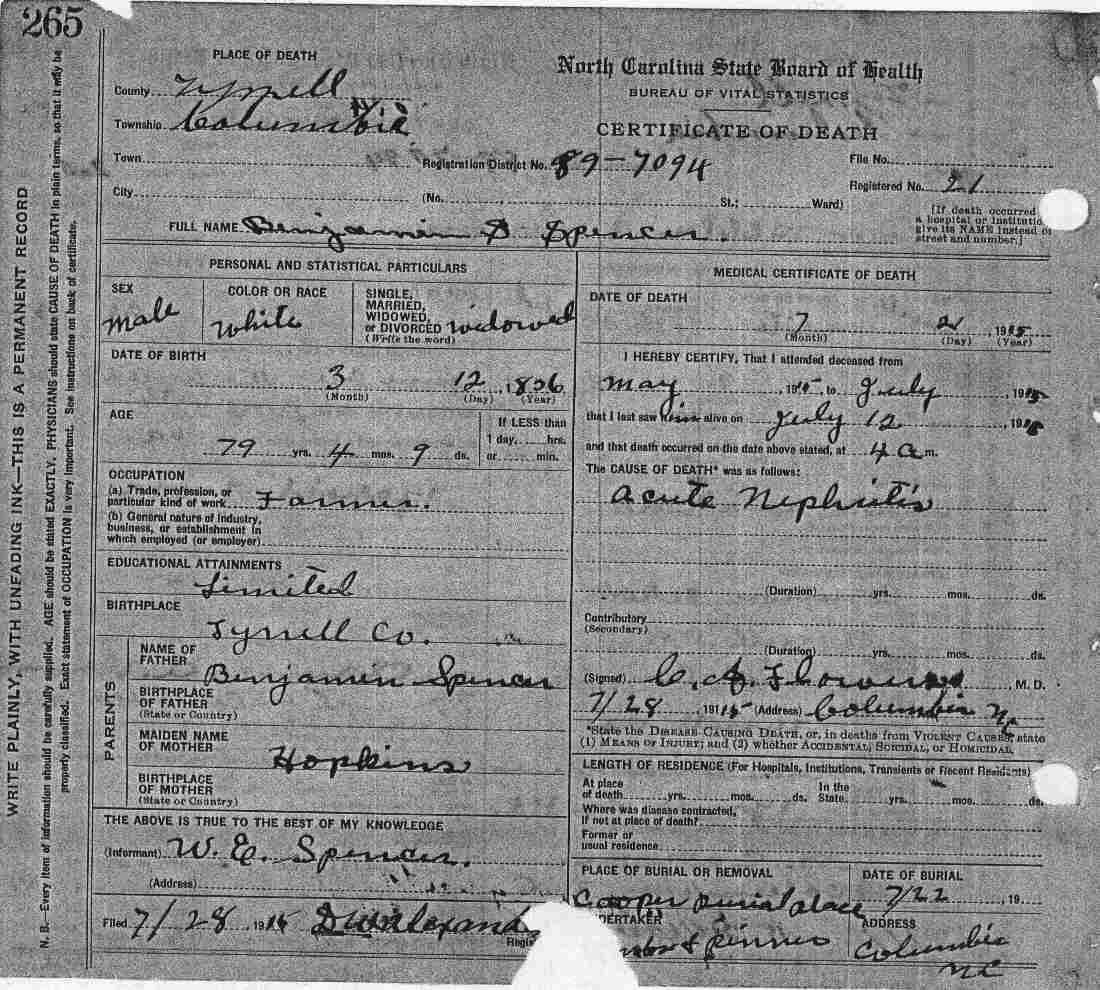 265
WRITE PLAINLY, WITH UNFADING INK—THIS IS A PERMANENT RECORD
N. B.—Every item of information should be carefully supplied. AGE should be stated EXACTLY. PHYSICIANS should state CAUSE OF DEATH in plain terms, so that it may be
properly classified. Exact statement of OCCUPATION is very important. See instructions on back of certificate.
PLACE OF DEATH
North Carolina State Board of Health
BUREAU OF VITAL STATISTICS
CERTIFICATE OF DEATH
County Tyrrell
Township Columbia
Town
Registration District No. 89-7094
File No.
Registered No. 21
City
(No. St.; Ward)
[If death occurred
a hospital or institutio
give its NAME instead o
street and number.]
FULL NAME Benjamin S Spencer.
PERSONAL AND STATISTICAL PARTICULARS
SEX
male
COLOR OR RACE
white
SINGLE,
MARRIED,
WIDOWED,
or DIVORCED widowed
(Write the word)
DATE OF BIRTH
3 12, 1836
(Month) (Day) (Year)
AGE
79 yrs. 4 mos. 9 ds.
If LESS than
1 day, hrs.
or min.
OCCUPATION
(a) Trade, profession, or
particular kind of work Farmer.
(b) General nature of industry,
business, or establishment in
which employed (or employer)
EDUCATIONAL ATTAINMENTS
Limited
BIRTHPLACE
Tyrrell Co.
PARENTS
NAME OF
FATHER
Benjamin Spencer
BIRTHPLACE
OF FATHER
(State or Country)
MAIDEN NAME
OF MOTHER
Hopkins
BIRTHPLACE
OF MOTHER
(State or Country)
THE ABOVE IS TRUE TO THE BEST OF MY KNOWLEDGE
(Informant) W. E. Spencer.
(Address)
Filed 7/28 1915
Regis
MEDICAL CERTIFICATE OF DEATH
DATE OF DEATH
7 21 1915
(Month) (Day) (Year)
I HEREBY CERTIFY, That I attended deceased from
may, 1915, to July, 1915
that I last saw him alive on July 12, 1915
and that death occurred on the date above stated, at 4 a m.
The CAUSE OF DEATH* was as follows:
Acute Nephritis
(Duration) yrs. mos. ds.
Contributory
(Secondary)
(Duration) yrs. mos. ds.
(Signed) C. A. Flowers, M. D.
7/28 1915 (Address) Columbia N.C.
*State the DISEASE CAUSING DEATH, or, in deaths from VIOLENT CAUSES, state
(1) MEANS OF INJURY; and (2) whether ACCIDENTAL, SUICIDAL, or HOMICIDAL.
LENGTH OF RESIDENCE (For Hospitals, Institutions, Transients or Recent Residents)
At place
of death yrs. mos. ds.
In the
State yrs. mos. ds.
Where was disease contracted,
if not at place of death?
Former or
usual residence
PLACE OF BURIAL OR REMOVAL
Cooper Burial place
DATE OF BURIAL
7/22, 19
DERTAKER
ADDRESS
Columbia
NC